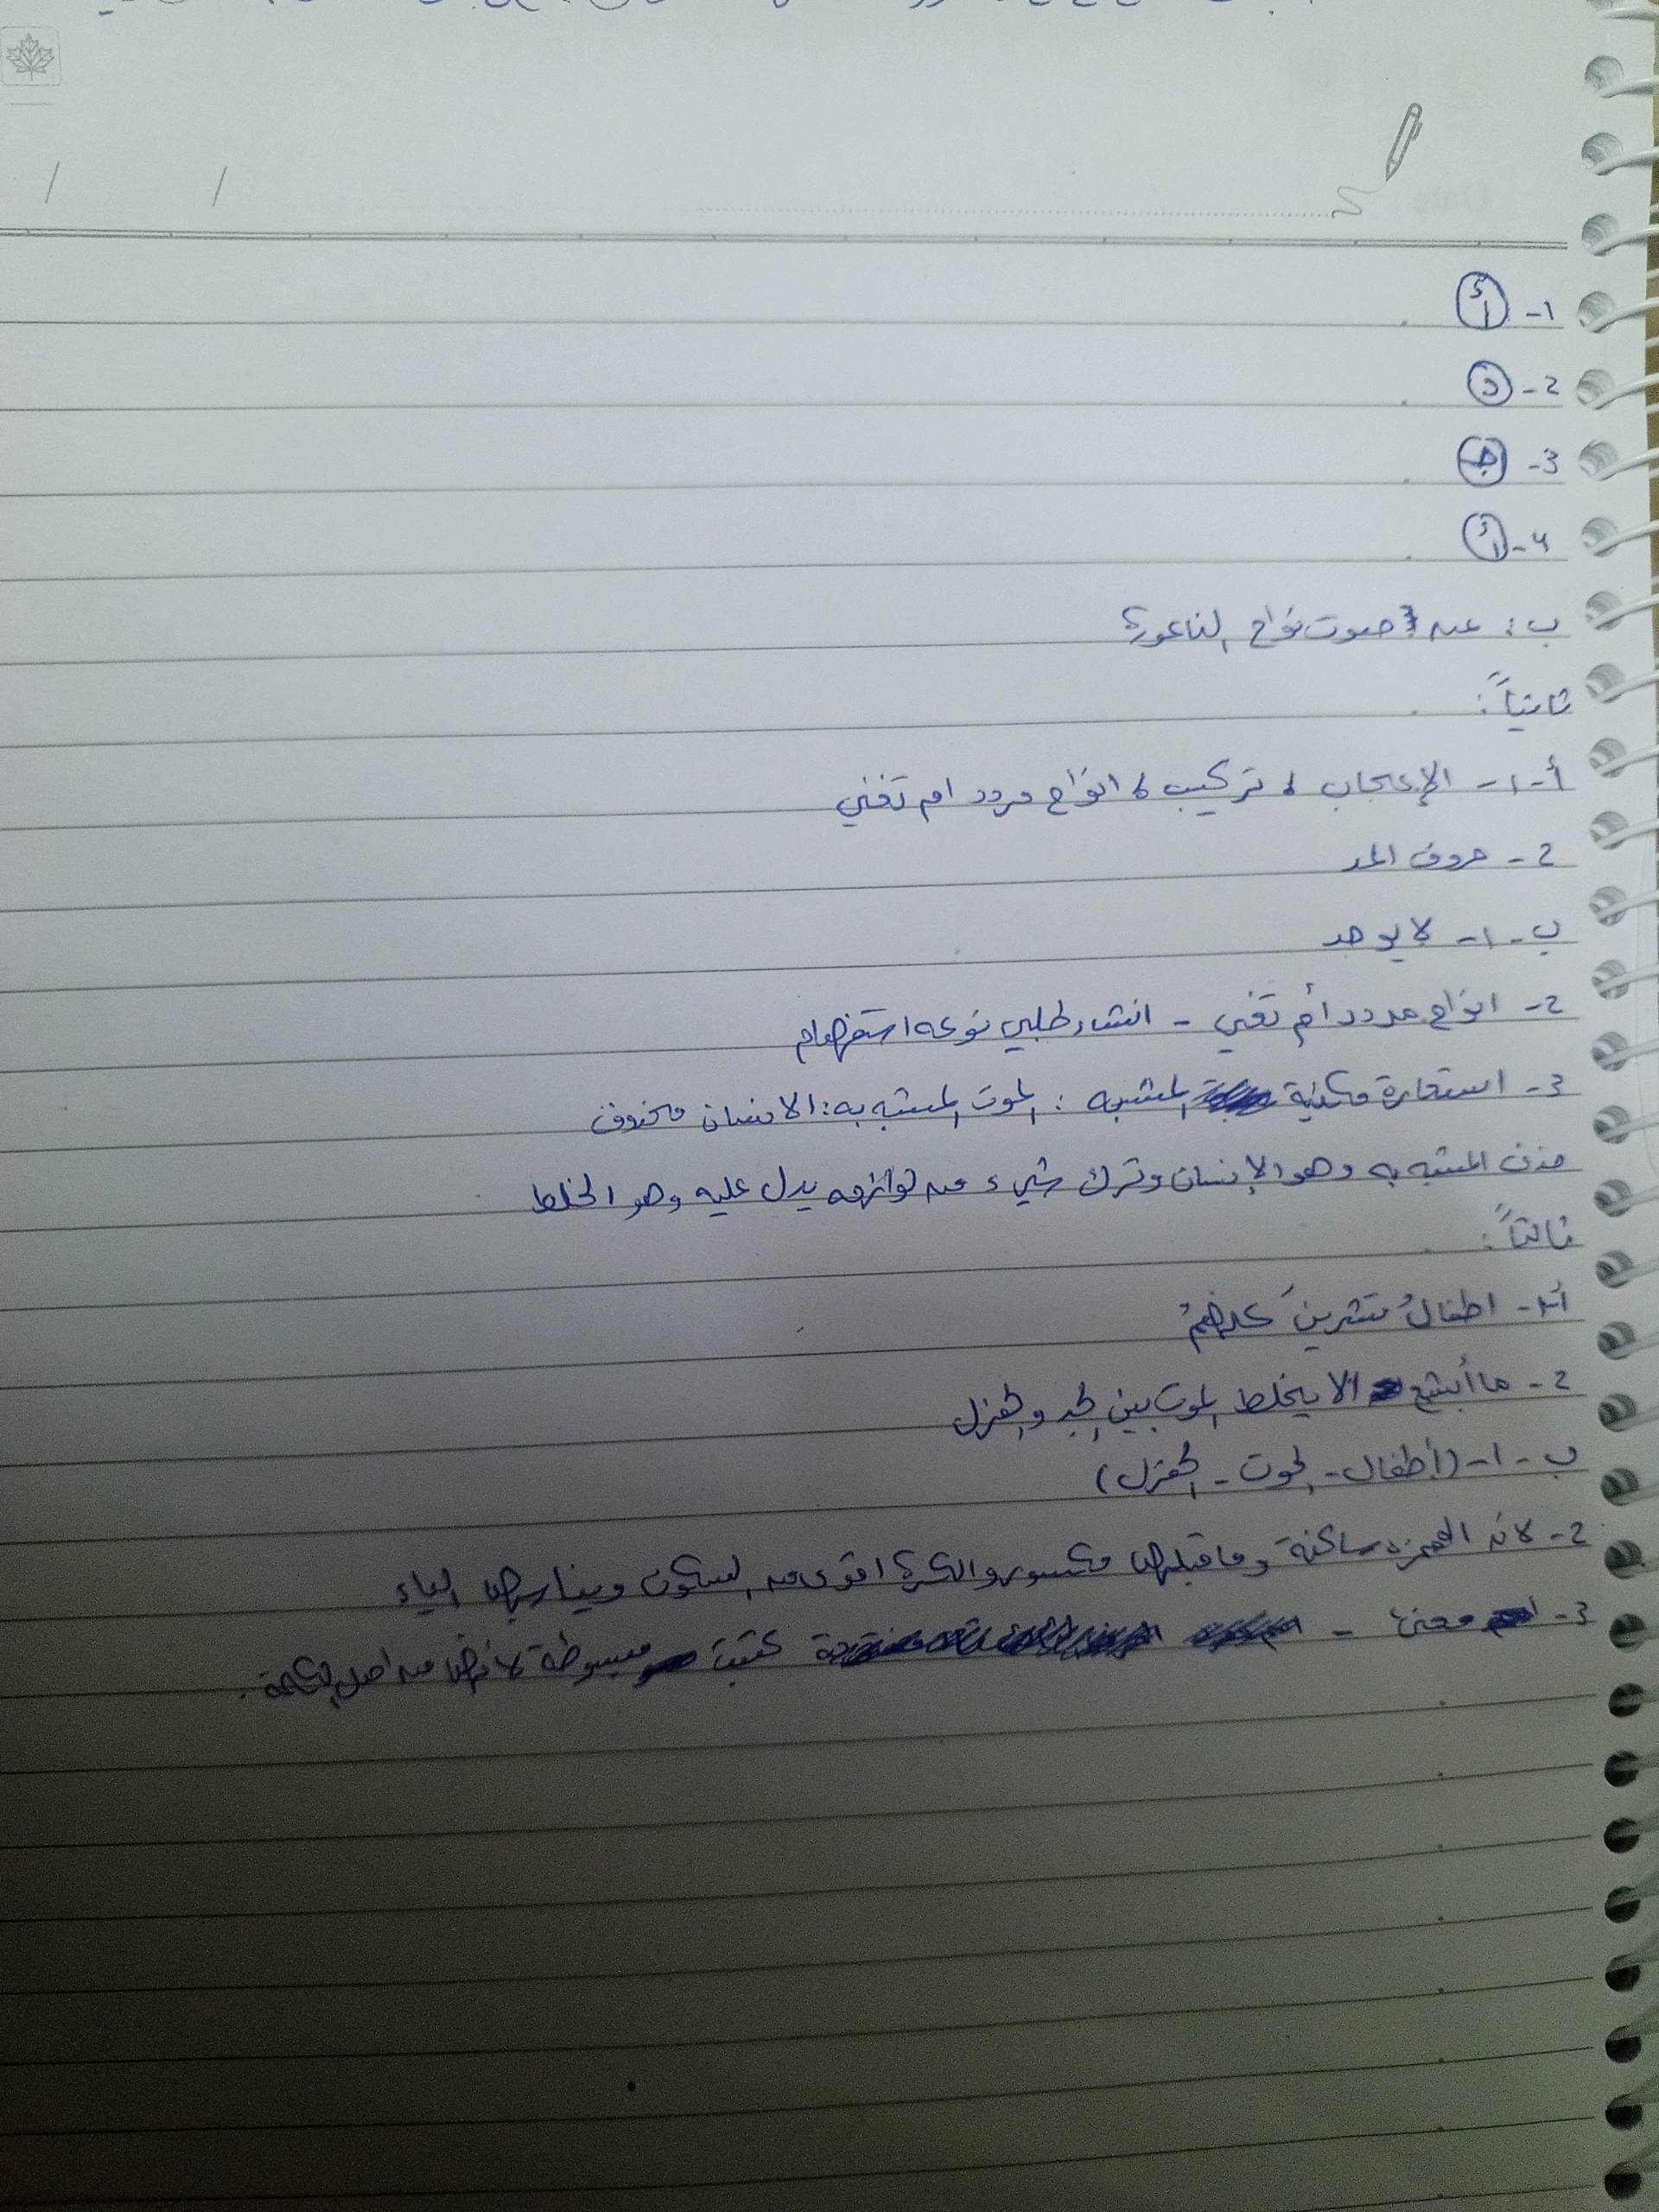 1- أ
2- د
3- ج
4- أ
ب: عن صوت نواح الناعورة
ثانياً:
أ-1- الإعجاب ، تركيب ، انواح مردد ام تغني
2- حروف المد
ب-1- لا يوجد
2- انواح مردد أم تغني - انشاء طلبي نوعه استفهام
3- استعارة مكنية المشبه : الموت المشبه به: الانسان محذوف
حذف المشبه به وهو الإنسان وترك شيء من لوازمه يدل عليه وهو الخلط
ثالثاً:
أ-1- اطفالُ تشرينَ كلهمُ
2- ما أبشع الا يخلط الموت بين الجد والهزل
ب-1- (أطفال - الموت - الهزل)
2- لانه الهمزه ساكنة وما قبلها مكسور والكسرة اقوى من السكون ويناسبها الياء
3- معنى - كتبت مبسوطة لانها من اصل الكلمة.